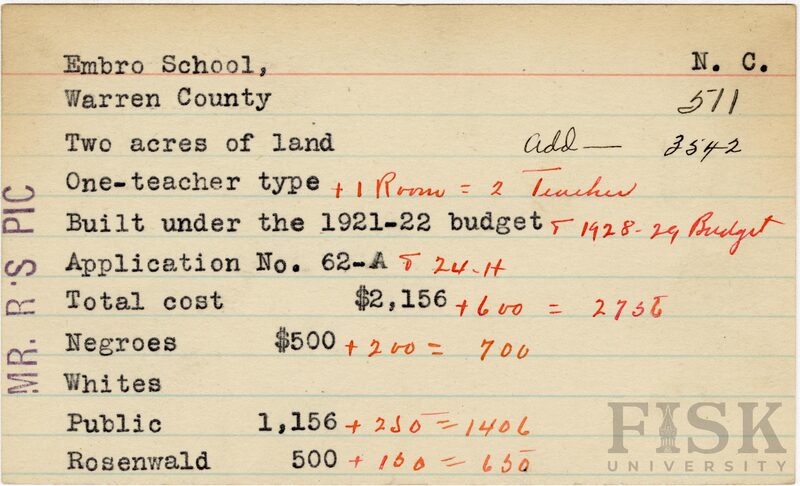 Embro School, N. C.
Warren County 511
Two acres of land add — 3542
One-teacher type + 1 Room = 2 Teacher
Built under the 1921-22 budget & 1928-29 Budget
Application No. 62-A & 24-H
Total cost $2,156 + 600 = 2756
Negroes $500 + 200 = 700
Whites
Public 1,156 + 250 = 1406
Rosenwald 500 + 150 = 650
MR. R'S PIC
FISK
UNIVERSITY